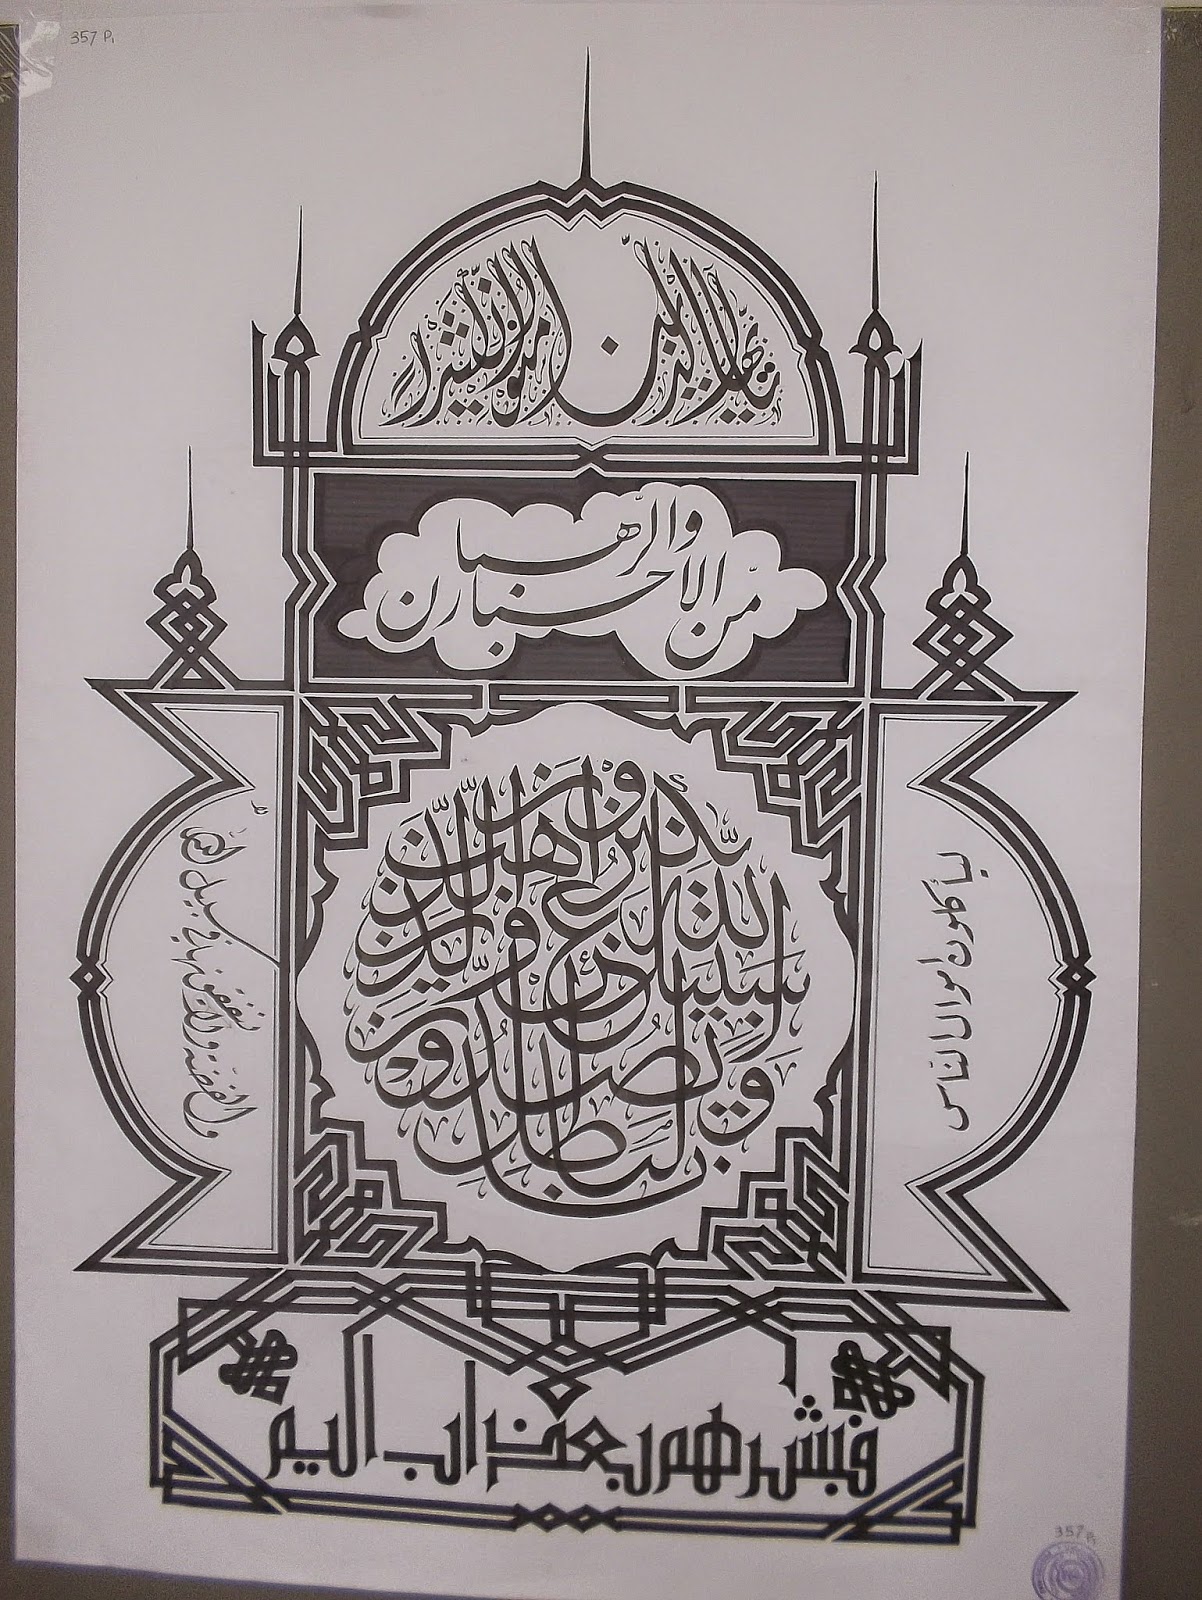 357 P1
يايها الذين امنوا ان كثيرا
من الاحبار والرهبان
ليأكلون اموال الناس
بالباطل ويصدون عن سبيل الله والذين يكنزون الذهب
والفضة ولا ينفقونها في سبيل الله
فبشرهم بعذاب اليم
357 P1